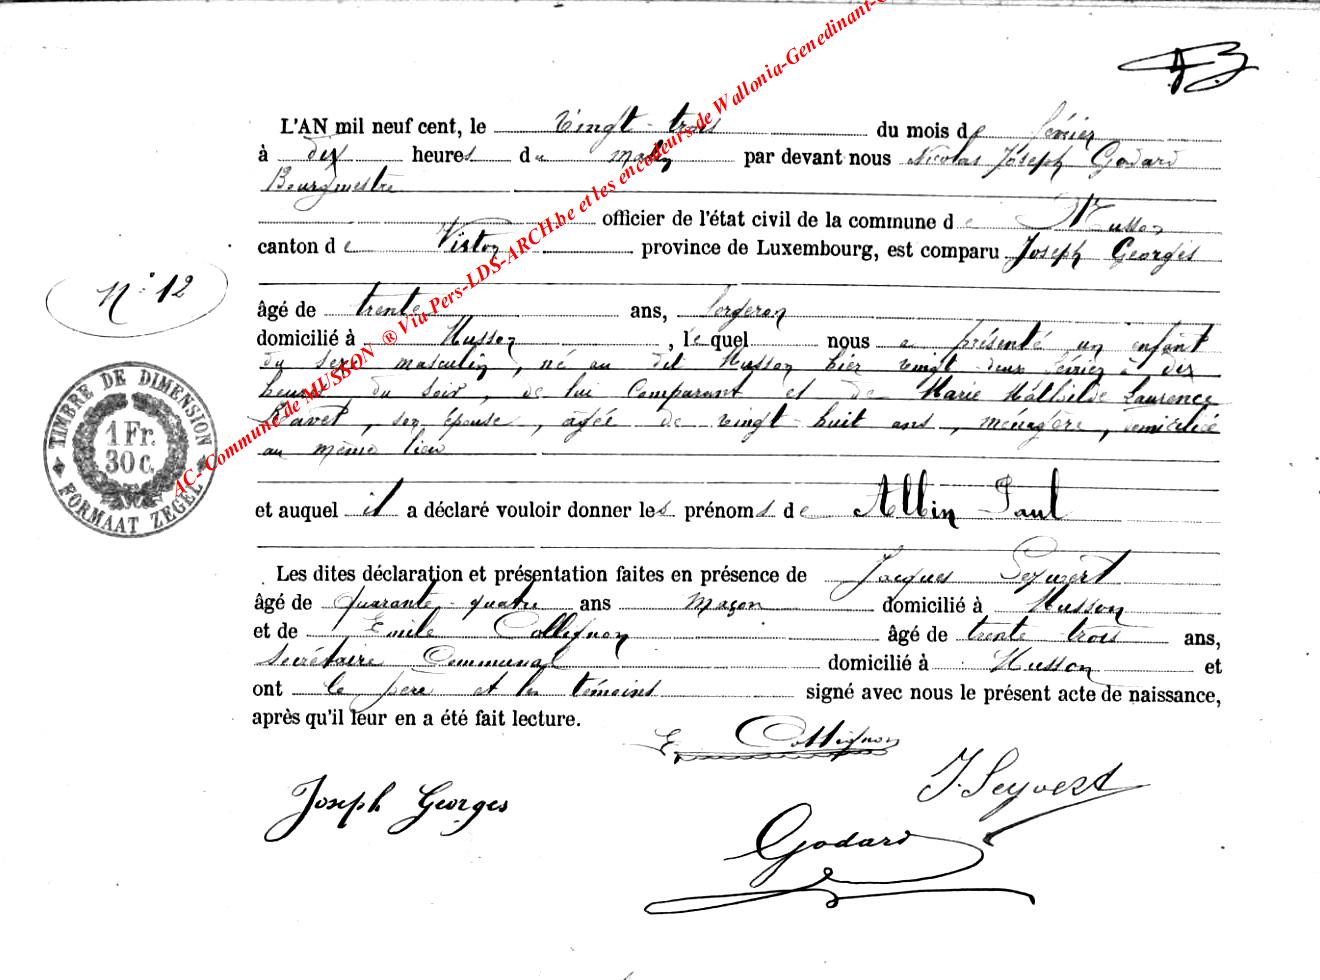 L'AN mil neuf cent, le vingt-trois du mois de février
à dix heures du matin par devant nous Nicolas Joseph Godard
Bourgmestre
officier de l'état civil de la commune de Musson
canton de Virton province de Luxembourg, est comparu Joseph Georges
N° 12
âgé de trente ans, forgeron
domicilié à Musson, lequel nous a présenté un enfant
du sexe masculin, né au dit Musson hier vingt deux février à dix
heures du soir, de lui comparant et de Marie Mathilde Laurence
son épouse, âgée de vingt-huit ans, ménagère, domiciliée
au même lieu
TIMBRE DE DIMENSION
1 Fr.
30 C.
FORMAAT ZEGEL
et auquel il a déclaré vouloir donner les prénoms de Albin Paul
Les dites déclaration et présentation faites en présence de Jacques Seyvert
âgé de quarante-quatre ans maçon domicilié à Musson
et de Emile Collignon âgé de trente trois ans,
secrétaire Communal domicilié à Musson et
ont le père et les témoins signé avec nous le présent acte de naissance,
après qu'il leur en a été fait lecture.
E. Collignon
Joseph Georges
J. Seyvert
Godard
AC- Commune de MUSSON ® Via Pers-LDS-ARCH.be et les encodeurs de Wallonia-Genedinant-